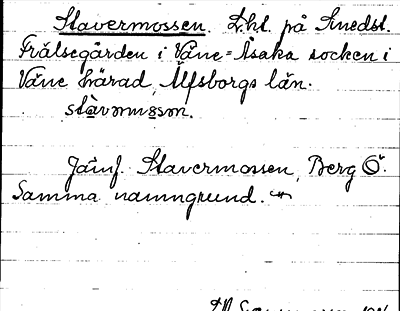 Stavermossen. Lht. på Snedst.
Frälsegården i Väne-Åsaka socken i
Väne härad, Älfsborgs län.
Jämf. Stavermossen, Berg Ö.
Samma namngrund.